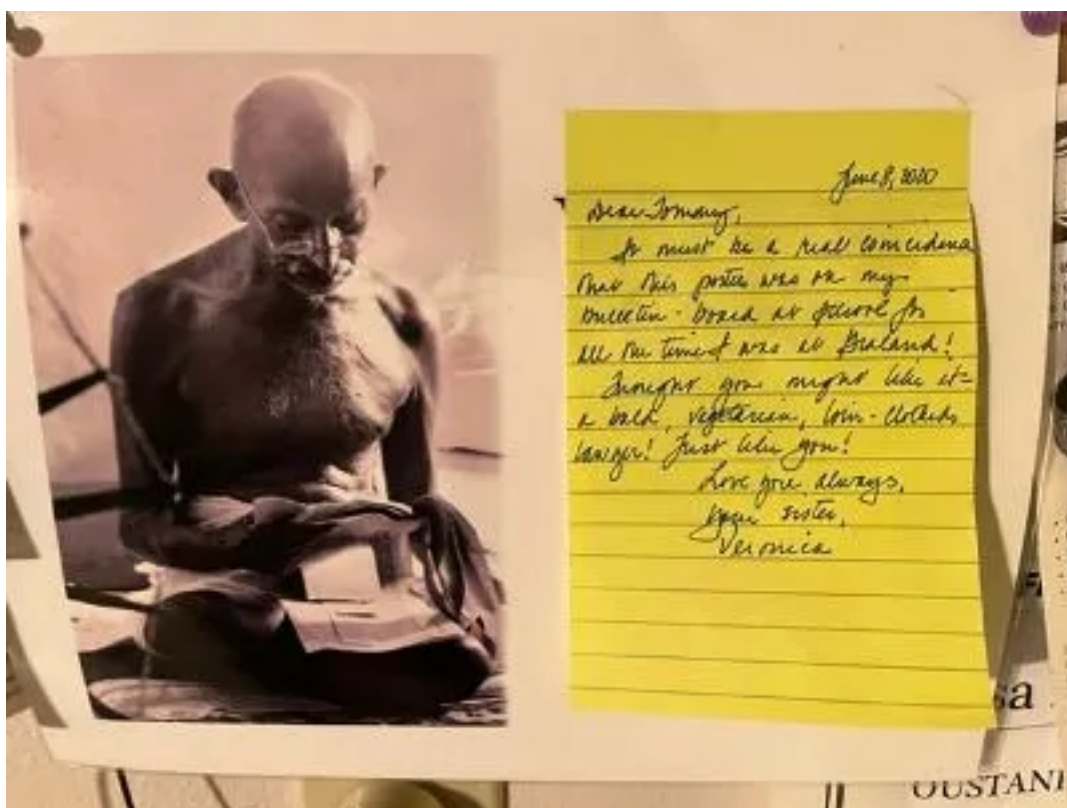 June 8, 2020
Dear Tommy,
It must be a real coincidence
that this poster was on my
bulletin-board at school for
all the time I was at
Thought you might like it-
a bald, vegetarian, loin-clothed
lawyer! Just like you!
Love you always,
your sister,
Veronica
sa
OUSTANI